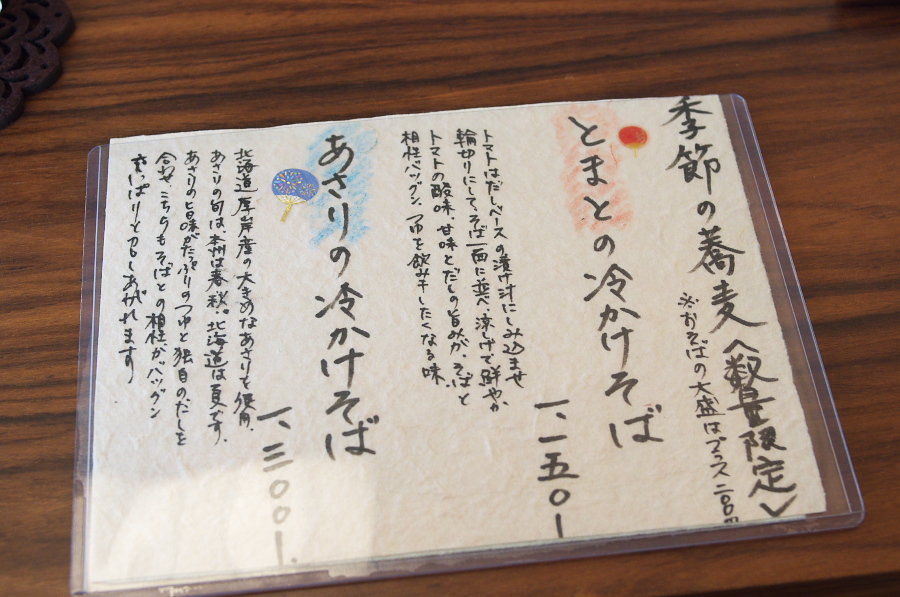 季節の蕎麦〈数量限定〉
※おそばの大盛はプラス二〇〇円
とまとの冷かけそば
一、一五〇ー
トマトはだしベースの漬け汁にしみ込ませ
輪切りにして、そば一面に並べ涼しげで鮮やか
トマトの酸味、甘味とだしの旨みが、そばと
相性バツグン、つゆを飲み干したくなる味
あさりの冷かけそば
一、三〇〇ー
北海道厚岸産の大きめなあさりを使用、
あさりの旬は、本州は春秋。北海道は夏です、
あさりの旨味がたっぷりのつゆと独自のだしを
合わせ、こちらもそばとの相性がバツグン
さっぱりと召しあがれます